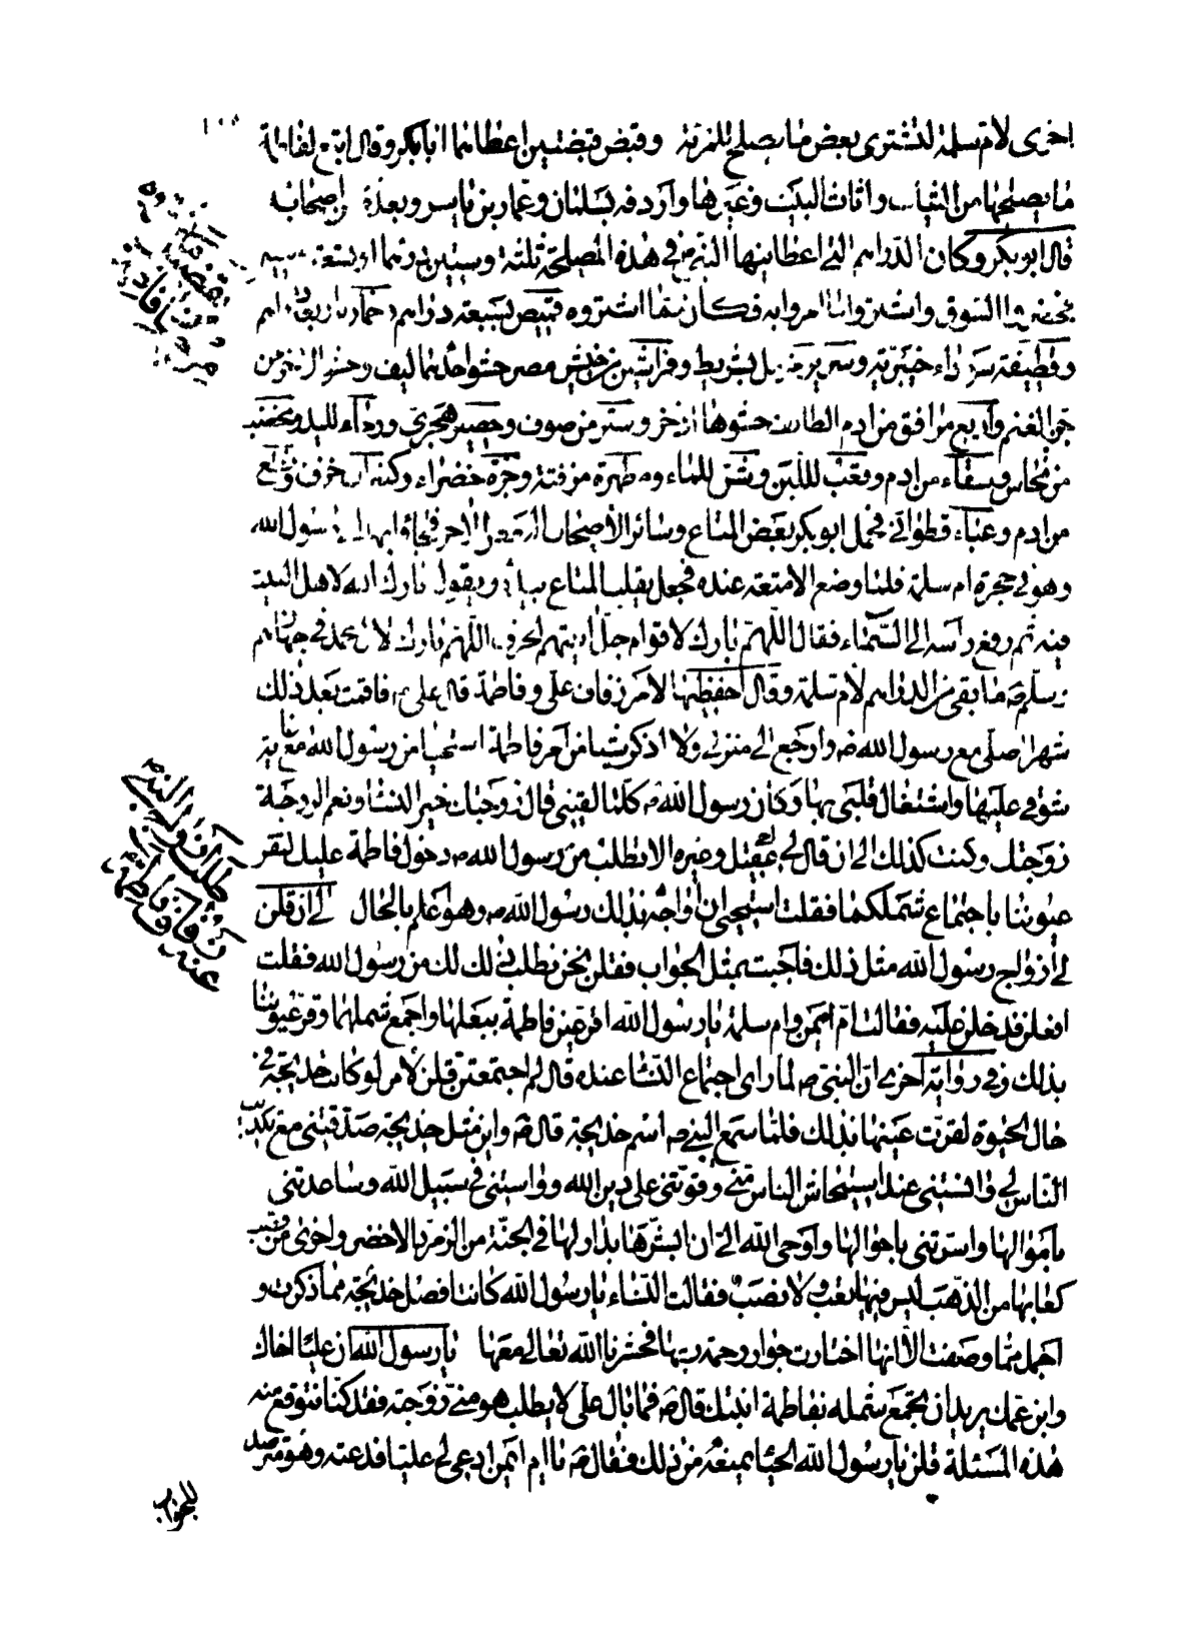 اخرى لام سلمة لتشترى بعض ما يصلح للمرئة وقبض قبضتين اعطاهما ابابكر وقال ابتع لفاطمة
ما يصلحها من الثياب واثاث البيت وغيرها واردفه بسلمان وعمار بن ياسر وبعدة من اصحابه
قال ابوبكر وكان الدراهم التى اعطانيها النبى ص فى هذه المصلحة ثلثة وستين درهما
السوق واشتروا ما امروا به فكان مما اشتروه قميص بسبعة دراهم وخمار باربعة دراهم
وقطيفة سوداء خيبرية وسرير مزمل بشريط وفراشين من خيش مصر حشو احدهما ليف وحشو الاخر من
جز الغنم واربع مرافق من ادم الطائف حشوها اذخر وستر من صوف وحصير هجرى ورحاء لليد ومخضب
من نحاس وسقاء من ادم وقعب لللبن وشن للماء ومطهرة مزفتة وجرة خضراء وكيزان خزف ونطع
من ادم وعباء قطوانى فحمل ابوبكر بعض المتاع وسائر الاصحاب البعض الاخر فجاؤا بها الى رسول الله
وهو فى حجرة ام سلمة فلما وضع الامتعة عنده فجعل يقلب المتاع بيده ويقول بارك الله لاهل البيت
فيه ثم رفع راسه الى السماء فقال اللهم بارك لاقوام جل انيتهم الخزف اللهم بارك لال محمد فى جهازهم
وسلم ص ما بقى من الدراهم لام سلمة وقال احفظيها لامر زفاف على وفاطمة قال على ع فاقمت بعد ذلك
شهرا اصلى مع رسول الله ص وارجع الى منزلى ولا اذكر شيئا من امر فاطمة استحيا من رسول الله مع غاية
شوقى عليها واشتغال قلبى بها وكان رسول الله ص كلما لقينى قال زوجتك خير النساء ونعم الزوجة
زوجتك وكنت كذلك الى ان قال لى عقيل وغيره الا تطلب من رسول الله ص دخول فاطمة عليك لتقر
عيوننا باجتماع شملكما فقلت استحيى ان اواجه بذلك رسول الله ص وهو اعلم بالحال الى ان قلن
لى ازواج رسول الله مثل ذلك فاجبت بمثل الجواب فقلن نحن نطلب ذلك لك من رسول الله فقلت
افعلن فدخلن عليه فقالت ام ايمن وام سلمة يا رسول الله اقر عين فاطمة ببعلها واجمع شملهما وقر عيوننا
بذلك وفى رواية اخرى ان النبى ص لما راى اجتماع النساء عنده قال لم اجتمعتن قلن لامر لو كانت خديجة فى
حال الحيوة لقرت عينها بذلك فلما سمع النبى ص اسم خديجة قال ص واين مثل خديجة صدقتنى مع تكذيب
الناس لى وانستنى عند استيحاش الناس منى وقوتنى على دين الله وواستنى فى سبيل الله وساعدتنى
باموالها واسرتنى باحوالها واوحى الله الى ان ابشرها بدار لها فى الجنة من الزمرد الاخضر واخرى من قصب
كعابها من الذهب ليس فيها تعب ولا نصب فقالت النساء يا رسول الله كانت افضل خديجة مما ذكرت و
اجمل مما وصفت الا انها اختارت جوار رحمة ربها فحشرنا الله تعالى معها يا رسول الله ان عليا اخاك
وابن عمك يريد ان يجمع شمله بفاطمة ابنتك قال ص فما بال على لا يطلب هو منى زوجته فقد كنا نتوقع منه
هذه المسئلة قلن يا رسول الله الحيا يمنعه من ذلك فقال ص يا ام ايمن ادعى لى عليا فدعته وهو مترصد
للجواب
طلب ازواج النبى
زفاف فاطمة
عنه